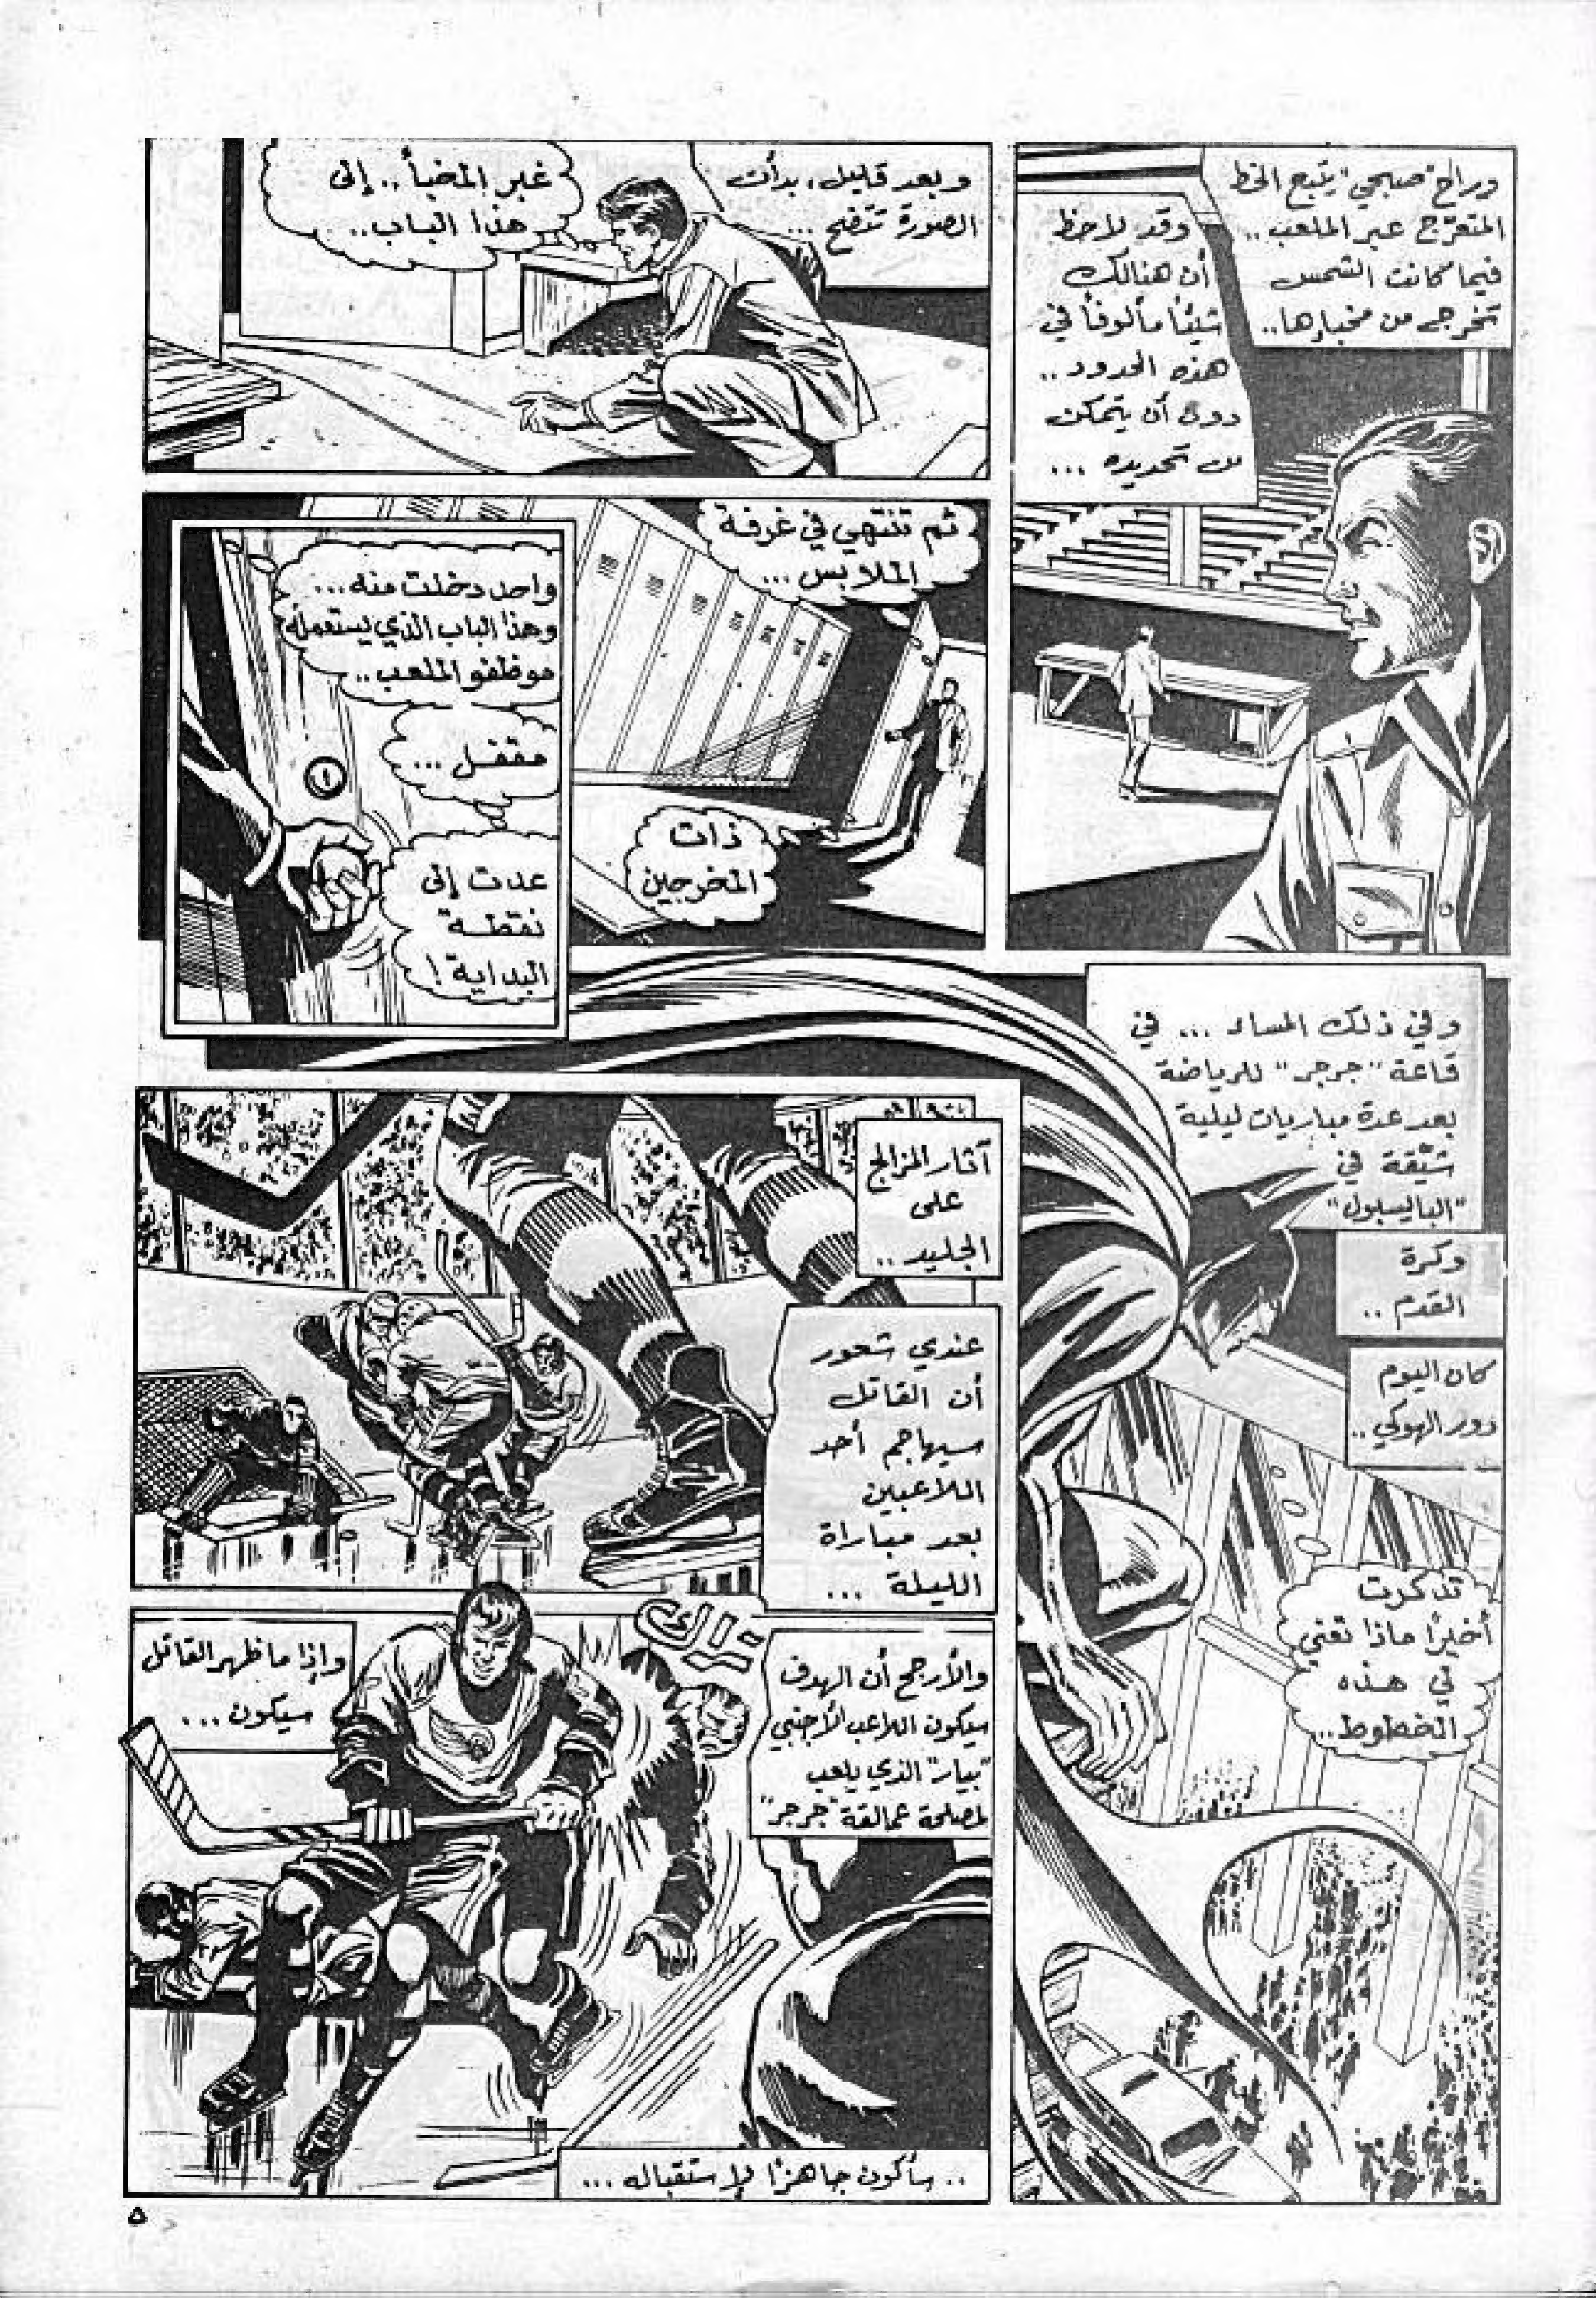 وراح "صبحي" يتبع الخط
المتعرّج عبر الملعب..
فيما كانت الشمس
تخرج من مخبارها..
وقد لاحظ
أن هنالك
شيئاً مألوفاً في
هذه الحدود..
دون أن يتمكن
من تحديده...
وبعد قليل، بدأت
الصورة تتضح...
غبر المخبأ.. إلى
هذا الباب..
ثم تنتهي في غرفة
الملابس...
ذات
المخرجين
واحد دخلت منه...
وهذا الباب الذي يستعمله
موظفو الملعب..
مقفل...
عدت إلى
نقطة
البداية!
وفي ذلك المساء... في
قاعة "جرجر" للرياضة
بعد عدة مباريات ليلية
شيّقة في
"البايسبول"
وكرة
القدم..
كان اليوم
دور الهوكي..
تذكرت
أخيرًا ماذا تعني
لي هذه
الخطوط..
آثار المزالج
على
الجليد..
عندي شعور
أن القاتل
سيهاجم أحد
اللاعبين
بعد مباراة
الليلة...
والأرجح أن الهدف
سيكون اللاعب الأجنبي
"بيار" الذي يلعب
لمصلحة عمالقة "جرجر"
وإذا ما ظهر القاتل
سيكون...
.. سأكون جاهزًا لإستقباله...
٥